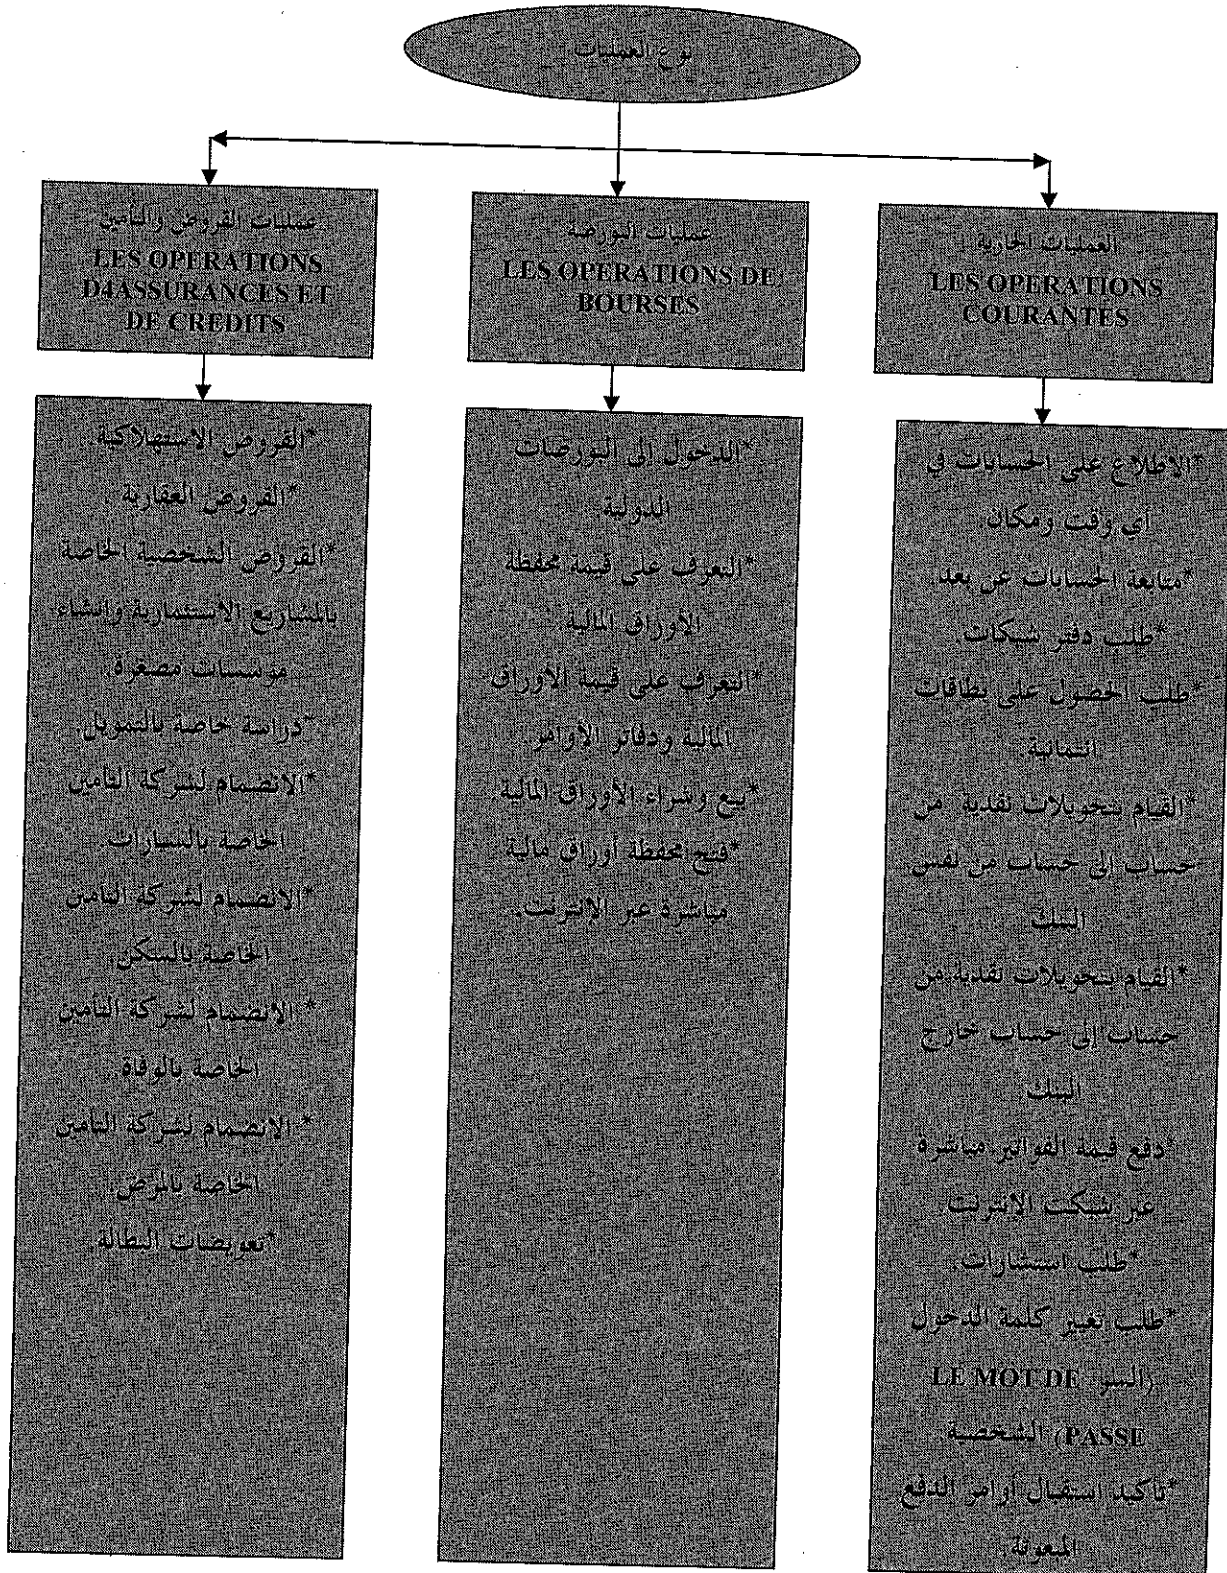 نوع العمليات
العمليات الجارية
LES OPERATIONS
COURANTES
*الاطلاع على الحسابات في
أي وقت ومكان
*متابعة الحسابات عن بعد
*طلب دفتر شيكات
*طلب الحصول على بطاقات
ائتمانية
*القيام بتحويلات نقدية من
حساب إلى حساب من نفس
البنك
*القيام بتحويلات نقدية من
حساب إلى حساب خارج
البنك
*دفع قيمة الفواتير مباشرة
عبر شبكت الإنترنت
*طلب استشارات
*طلب تغيير كلمة الدخول
(السر LE MOT DE
PASSE) الشخصية
*تأكيد استقبال أوامر الدفع
عمليات البورصة
LES OPERATIONS DE
BOURSES
*الدخول إلى البورصات
الدولية
*التعرف على قيمة محفظة
الأوراق المالية
*التعرف على قيمة الأوراق
المالية ودفاتر الأوامر
*بيع وشراء الأوراق المالية
*فتح محفظة أوراق مالية
مباشرة عبر الانترنت.
عمليات القروض والتأمين
LES OPERATIONS
D4ASSURANCES ET
DE CREDITS
*القروض الاستهلاكية
*القروض العقارية
*القروض الشخصية الخاصة
بالمشاريع الاستثمارية وإنشاء
مؤسسات مصغرة
*دراسة خاصة بالتمويل
*الانضمام لشركة التأمين
الخاصة بالسيارات
*الانضمام لشركة التأمين
الخاصة بالسكن
* الانضمام لشركة التأمين
الخاصة بالوفاة
* الانضمام لشركة التأمين
الخاصة بالمرض
*تعويضات البطالة